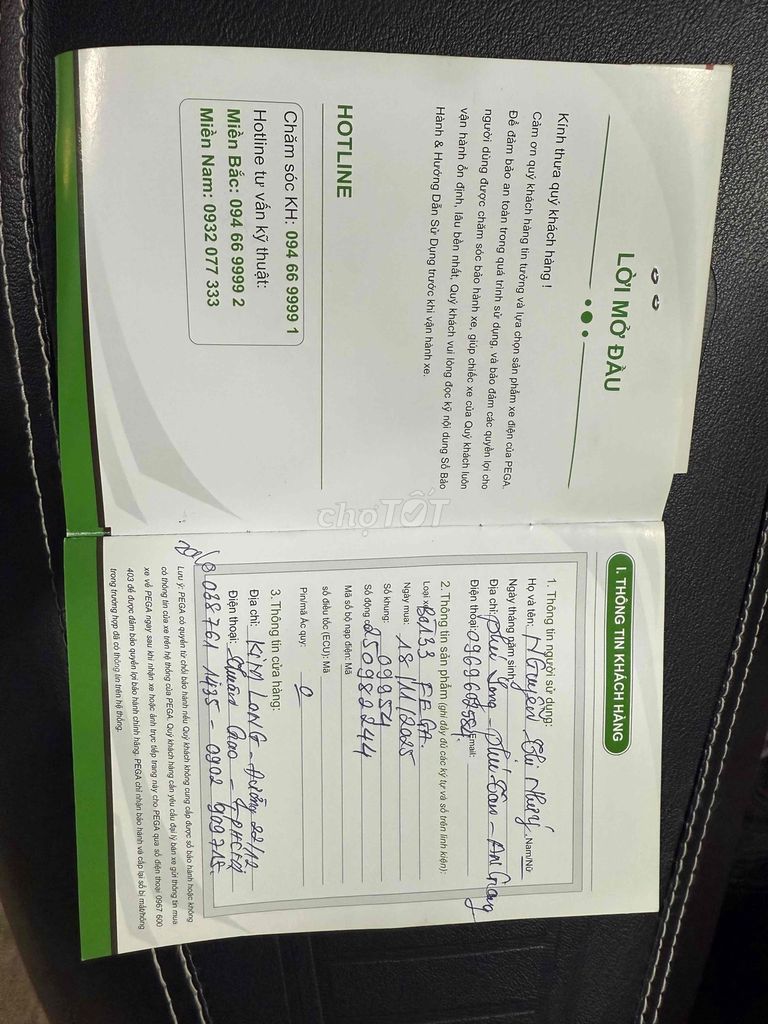 LỜI MỞ ĐẦU
Kính thưa quý khách hàng !
Cảm ơn quý khách hàng tin tưởng và lựa chọn sản phẩm xe điện của PEGA.
Để đảm bảo an toàn trong quá trình sử dụng, và bảo đảm các quyền lợi cho
người dùng được chăm sóc bảo hành xe, giúp chiếc xe của Quý khách luôn
vận hành ổn định, lâu bền nhất, Quý khách vui lòng đọc kỹ nội dung Sổ Bảo
Hành & Hướng Dẫn Sử Dụng trước khi vận hành xe.
HOTLINE
Chăm sóc KH: 094 66 9999 1
Hotline tư vấn kỹ thuật:
Miền Bắc: 094 66 9999 2
Miền Nam: 0932 077 333
chợTỐT
I. THÔNG TIN KHÁCH HÀNG
1. Thông tin người sử dụng:
Họ và tên: Nguyễn Thị Như Ý Nam/Nữ
Ngày tháng năm sinh:
Địa chỉ: Phú Long - Phú Tân - An Giang
Điện thoại: Email:
2. Thông tin sản phẩm (ghi đầy đủ các ký tự và số trên linh kiện):
Loại xe: PEGA.
Ngày mua: 18/11/2025
Số khung: 09954
Số động cơ: 250982244
Mã số bộ nạp điện: Mã
số điều tốc (ECU): Mã
Pin/mã Ắc quy:
3. Thông tin cửa hàng:
Địa chỉ: KIM LONG - Đường 22/12
Điện thoại: Thuận Giao -
038761 1435 - 0902 909715.
Lưu ý: PEGA có quyền từ chối bảo hành nếu Quý khách không cung cấp được sổ bảo hành hoặc không
có thông tin của xe trên hệ thống của PEGA. Quý khách hàng cần yêu cầu đại lý bán xe gửi thông tin mua
xe về PEGA ngay sau khi nhận xe hoặc ảnh trực tiếp trang này cho PEGA qua số điện thoại 0967 600
403 để được đảm bảo quyền lợi bảo hành chính hãng. PEGA chỉ nhận bảo hành và cấp lại sổ bị mất/hỏng
trong trường hợp đã có thông tin trên hệ thống.